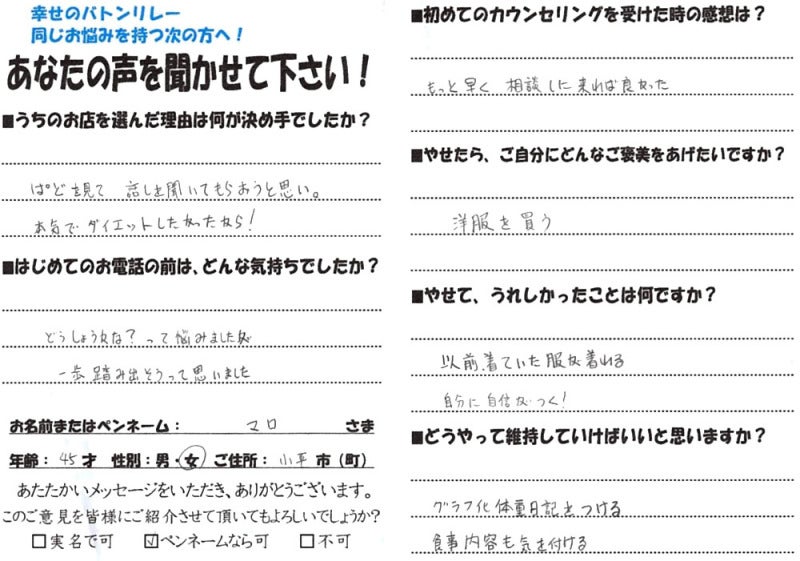 幸せのバトンリレー
同じお悩みを持つ次の方へ！
あなたの声を聞かせて下さい！
■うちのお店を選んだ理由は何が決め手でしたか？
ぱどを見て 話しを聞いてもらおうと思い。
本気でダイエットしたかったから！
■はじめてのお電話の前は、どんな気持ちでしたか？
どうしようかな？って悩みましたが
一歩踏み出そうって思いました
お名前またはペンネーム： マロ さま
年齢：45才 性別：男・女 ご住所：小平市（町）
あたたかいメッセージをいただき、ありがとうございます。
このご意見を皆様にご紹介させて頂いてもよろしいでしょうか？
□実名で可 ☑ペンネームなら可 □不可
■初めてのカウンセリングを受けた時の感想は？
もっと早く 相談しに来れば良かった
■やせたら、ご自分にどんなご褒美をあげたいですか？
洋服を買う
■やせて、うれしかったことは何ですか？
以前着ていた服が着れる
自分に自信がつく！
■どうやって維持していけばいいと思いますか？
グラフ化体重日記をつける
食事内容も気を付ける